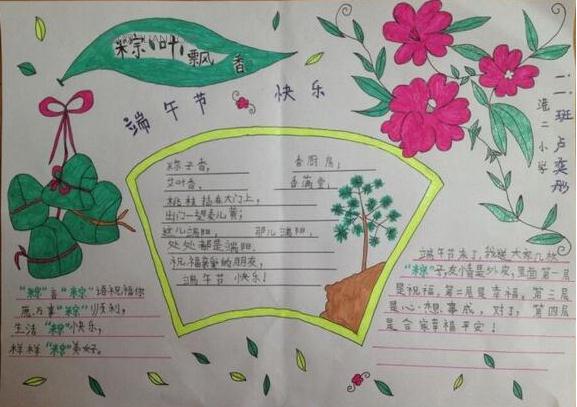 粽叶飘香
端午节 快乐
一.二班 卢奕彤
淮二小学
粽子香, 香厨房;
艾叶香, 香满堂;
桃枝插在大门上,
出门一望麦儿黄;
这儿端阳, 那儿端阳,
处处都是端阳.
祝福亲爱的朋友,
端午节 快乐!
"粽"言"粽"语祝福你
愿万事"粽"顺利,
生活"粽"快乐,
样样"粽"美好.
端午节来了,我送大家几枚
"粽"子,友情是外皮,里面第一层
是祝福,第二层是幸福,第三层
是心想事成,对了,第四层
是合家幸福平安!